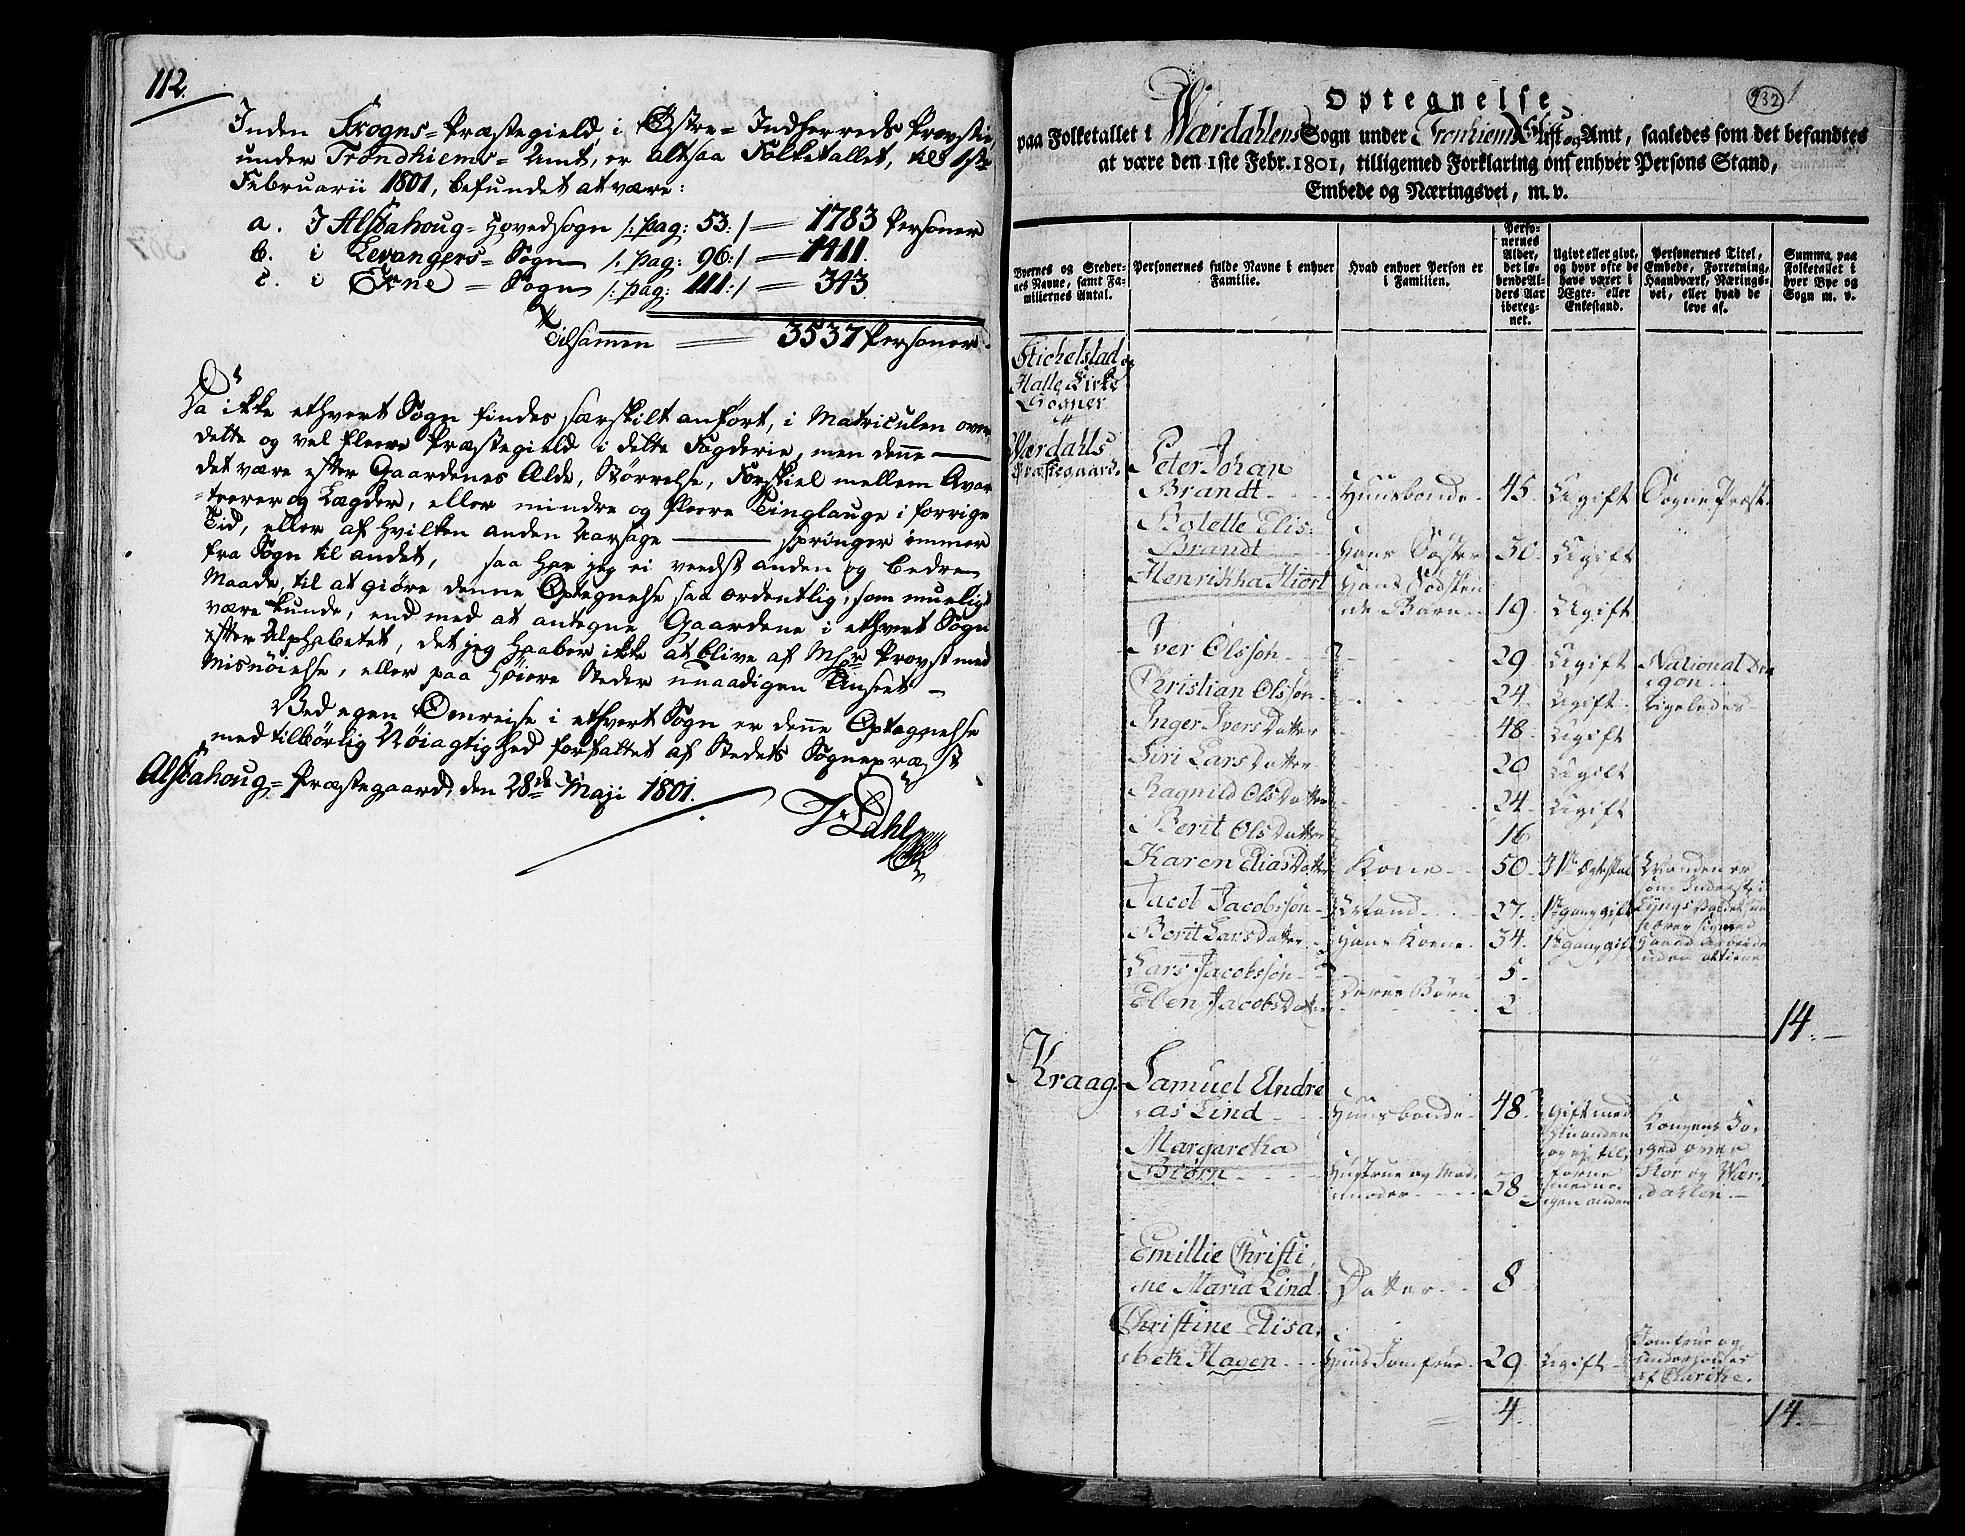 112.
Inden Skogns= Præstegield, i Østre= Indherreds Provstie,
under Trondhiems= Amt, er altsaa Folketallet, til 1ste
Februarii 1801, befundet at være:
a. I Alstahoug= Hovedsogn /: pag: 53: / = 1783 Personer
b. i Levangers= Sogn /: pag: 96: / = 1411.
c. i Ekne = Sogn /: pag: 111: / = 343
Tilsammen = 3537 Personer.
Da ikke ethvert Sogn findes særskilt anført, i Matriculen over
dette og vel fleere Præstegield i dette Fogderie, men denne —
det være efter Gaardenes Alde, Størrelse, Forskiel mellem Qvar
=terer og Lægder, eller mindre og fleere Tinglauge i forrige
Tid, eller af hvilken anden Aarsage — springer immer
fra Sogn til andet, saa har jeg ei veedst anden og bedre
Maade, til at giøre denne Optegnelse saa ordentlig, som mueligt
være kunde, end med at antegne Gaardene i ethvert Sogn
efter Alphabetet, det jeg haaber ikke at blive af Hr Provst med
Misnøielse, eller paa høiere Steder unaadigen Anseet —
Ved egen Omreise i ethvert Sogn er denne Optægnelse
med tilbørlig Nøiagtighed forfattet af Stedets Sognepræst
Alstahoug= Præstegaard, den 28de Maji 1801.
J Dahl
932 1
Optegnelse
paa Folketallet i Wærdahlens Sogn under Tronhiems Stift og Amt, saaledes som det befandtes
at være den 1ste Febr. 1801, tilligemed Forklaring om enhver Persons Stand,
Embede og Næringsvei, m. v.
Byernes og Stedernes Navne, samt Familiernes Antal. Personernes fulde Navne i enhver Familie. Hvad enhver Person er i Familien. Personernes Alder, det løbende Alders Aar iberegnet. Ugivt eller givt, og hvor ofte de have været i Ægte- eller Enkestand. Personernes Titel, Embede, Forretning, Haandværk, Næringsvei, eller hvad de leve af. Summa, paa Folketallet i hver Bye og Sogn m. v.
Stichelstad og
Halle Kirke
Sogner
Værdahls
Præstegaard. Peter Johan
Brandt Huusbonde 45 Ugift Sogne Præst
Bolette Elis:
Brandt Hans Søster 30 Ugift
Henrikka Hiort Hans Søsken
de Barn 19 Ugift
Iver Olsson 29 Ugift National Dra
gon
Christian Olsson 24 Ugift Ligeledes
Inger Ivers Datter 48 Ugift
Siri Lars Datter 20 Ugift
Ragnild Ols Datter 24 Ugift
Berit Ols Datter 16
Karen Elias Datter Kone 50
Jacob Jacobsson 27. 1te gang gift
Berit Lars Datter Hans Kone 34. 1te gang gift
Lars Jacobsson 5.
Elen Jacobs Datter Deres Børn 2
14.
Kraag Samuel Andre
as Lind Huusbonde 48. gift med
hinanden
og ej til
forne
med no
gen anden Kongens Fo
ged over
Stør og Vær
dahlen
Margaretha
Biørn Hustrue og Mad
moder 38
Emillie Christi
ne Maria Lind Datter 8
Christine Elisa
beth Hagen Huus Jomfrue 29 Ugift Jomfrue og
underholdes
4. 14.